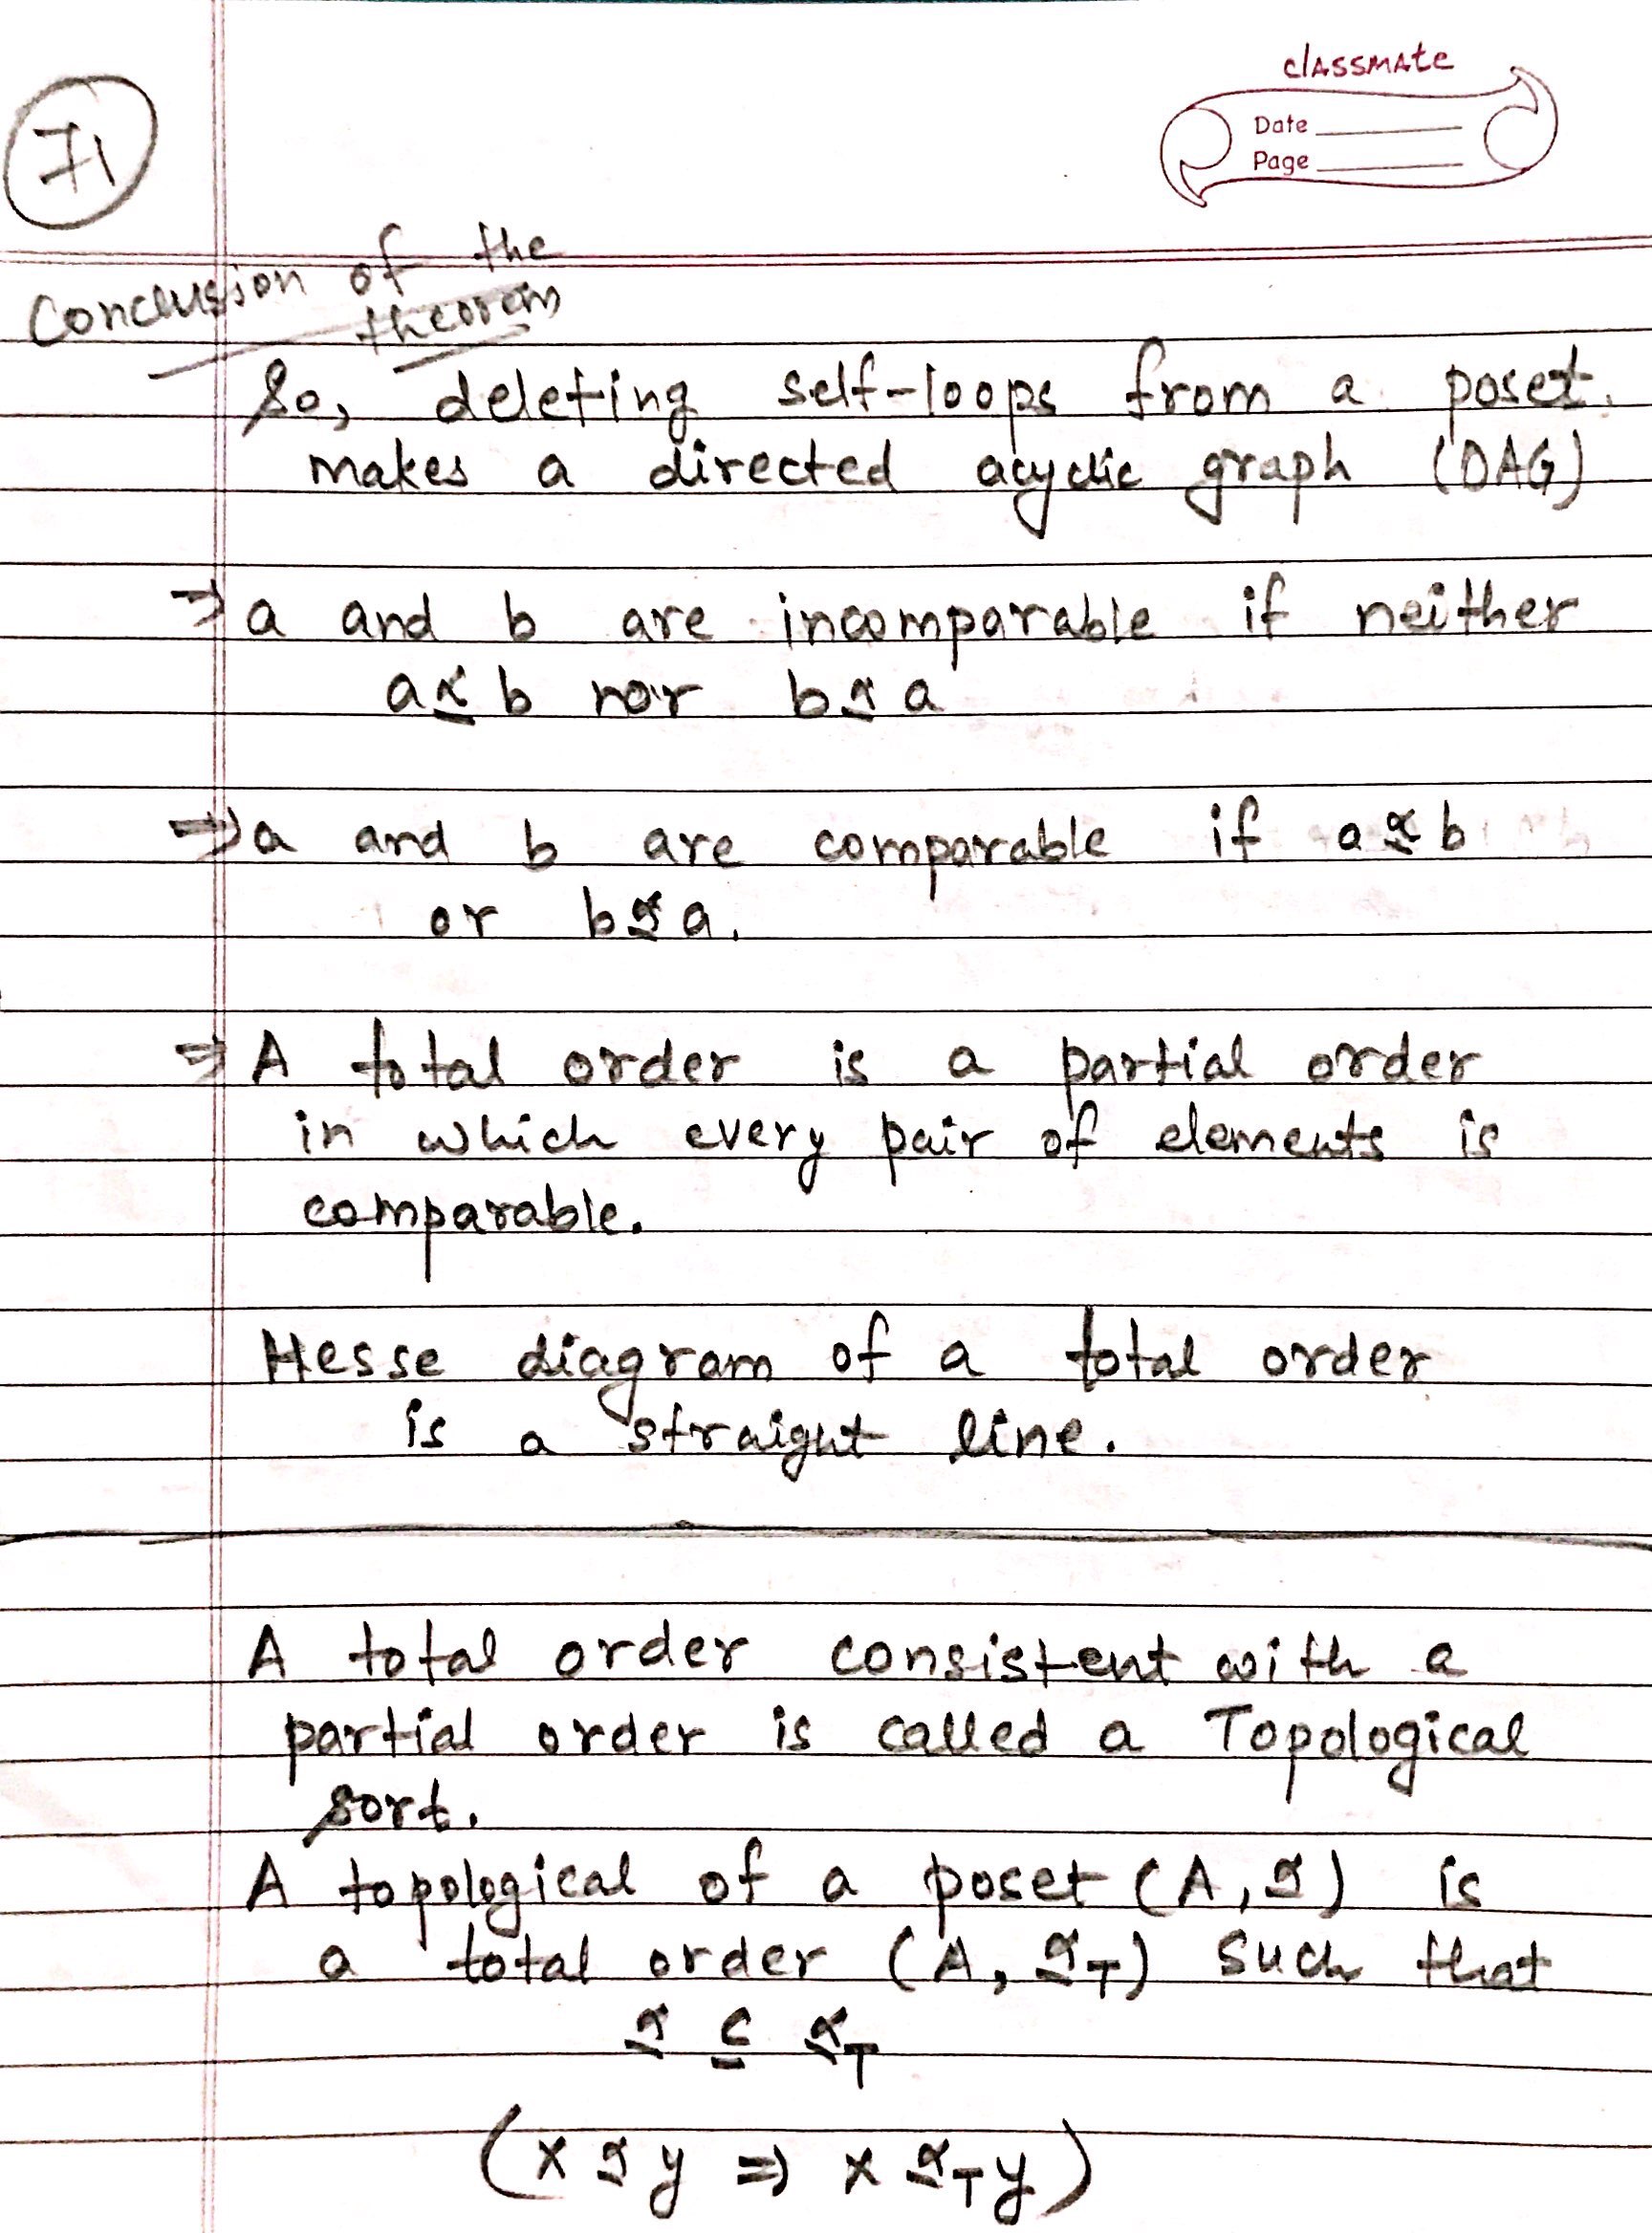 classmate
Date
Page
71
Conclusion of the
theorem
So, deleting self-loops from a poset.
makes a directed acyclic graph (DAG)
⇒ a and b are incomparable if neither
a ⪯ b nor b ⪯ a
⇒ a and b are comparable if a ⪯ b
or b ⪯ a.
⇒ A total order is a partial order
in which every pair of elements is
comparable.
Hesse diagram of a total order
is a straight line.
A total order consistent with a
partial order is called a Topological
sort.
A topological of a poset (A, ⪯) is
a total order (A, ⪯T) such that
⪯ ⊆ ⪯T
(x ⪯ y ⇒ x ⪯T y)